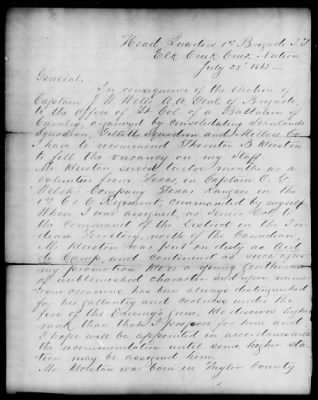 Head Quarters 1st Brigade I.T
Elk Creek Creek Nation
July 25th 1863
General,
In consequence of the election of
Captain J W Wells A A Genl of Brigade,
to the office of Lt Col of a Battalion of
Cavalry organized by consolidating
Squadron, Gilletts Squadron and Wells Co
I have to recommend Thornton B. Heiston
to fill the vacancy on my Staff.
Mr Heiston served twelve months as a
volunteer from Texas, in Captain O. G.
Welch's Company Texas Rangers in the
1st C & C Regiment, commanded by myself
When I was assigned, as Senior Col to
the command of the District in the In-
dian Territory, north of the Canadian,
Mr Heiston was put on duty as Aid
de Camp, and continued as such after
my promotion He is a young gentleman
of unblemished character and upon numer-
ous occasions has been always distinguished
for his gallantry and coolness under the
fire of the Enemy's guns. He deserves higher
rank than that I propose for him and
I hope will be appointed in accordance with
the recommendation until some higher sta-
tion may be assigned him.
Mr. Heiston was born in Taylor County